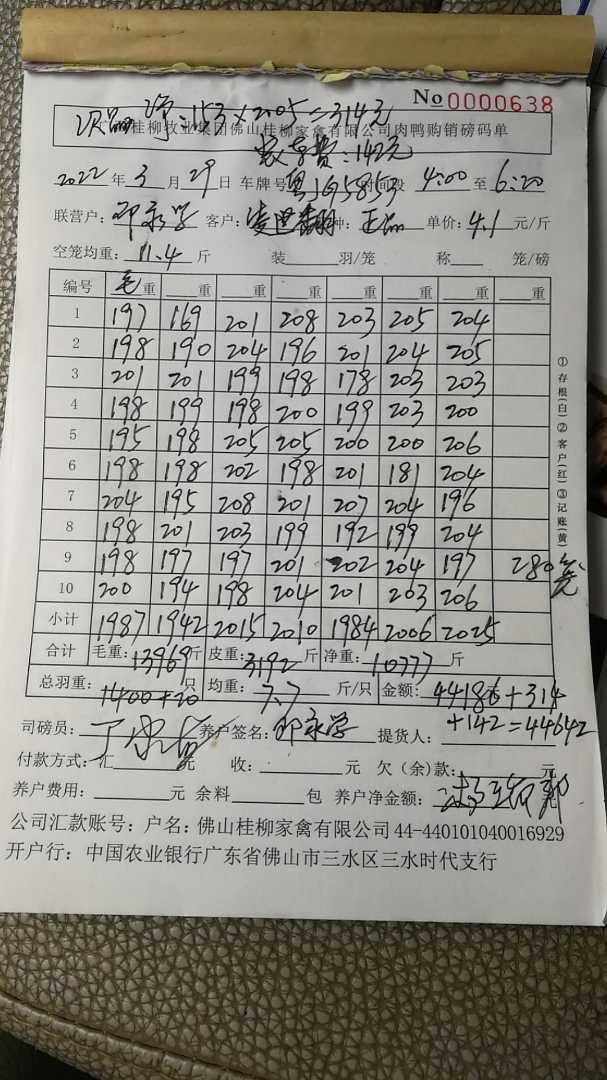 No 0000638
次品 净:153×2.05=314元
广西桂柳牧业集团佛山桂柳家禽有限公司肉鸭购销磅码单
费:142元
2022年3月29日 车牌号 粤J65853 时间段 4:00至6:20
联营户: 邓永学 客户: 种: 正品 单价: 4.1元/斤
空笼均重: 11.4斤 装 羽/笼 称 笼/磅
编号 毛重 重 重 重 重 重 重 重
1 197 169 201 208 203 205 204
2 198 190 204 196 201 204 205
3 201 201 199 198 178 203 203
4 198 199 198 200 199 203 200
5 195 198 205 205 200 200 206
6 198 198 202 198 201 181 204
7 204 195 208 201 207 204 196
8 198 201 203 199 192 199 204
9 198 197 197 201 202 204 197 280笼
10 200 194 198 204 201 203 206
小计 1987 1942 2015 2010 1984 2006 2025
合计 毛重:13969斤 皮重:3192斤 净重:10777斤
总羽重: 1400+20只 均重: 7.7斤/只 金额: 44186+314
+142=44642
司磅员: 养户签名: 邓永学 提货人:
付款方式: 汇 元 收: 元 欠(余)款: 元
养户费用: 元 余料 包 养户净金额: 元
公司汇款账号: 户名: 佛山桂柳家禽有限公司 44-440101040016929
开户行: 中国农业银行广东省佛山市三水区三水时代支行
①存根(白)②客户(红)③记账(黄)